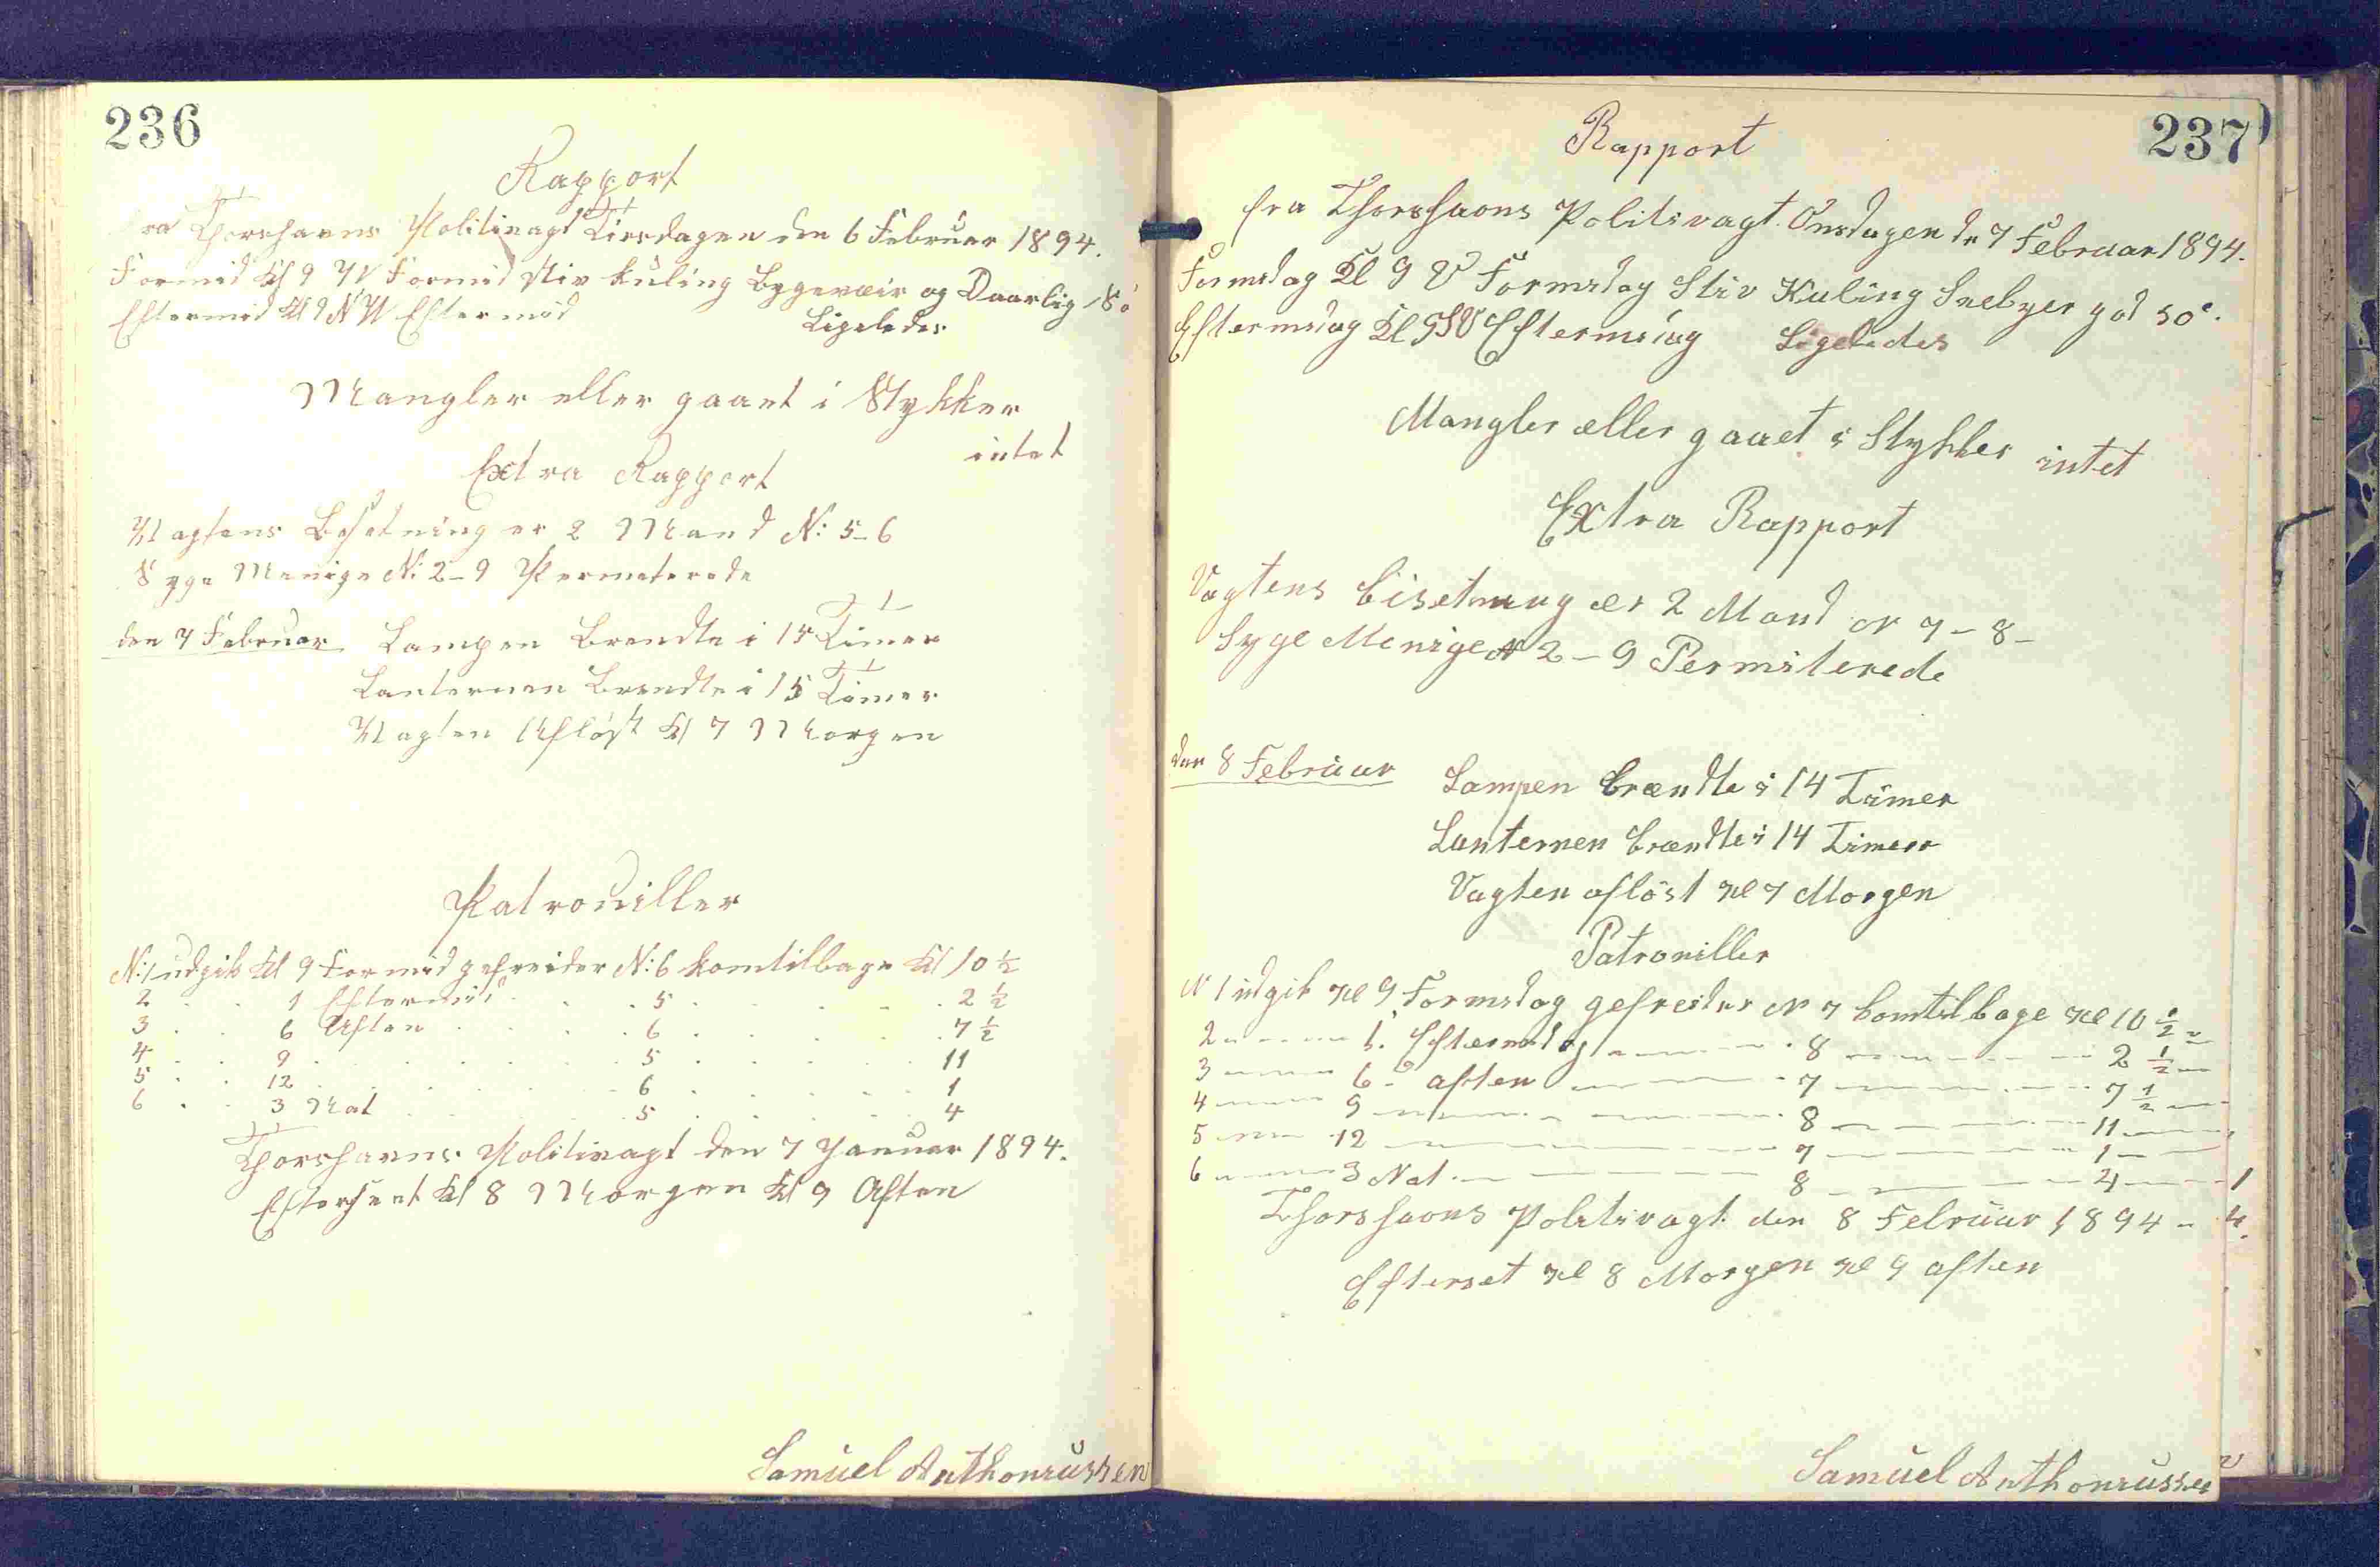 236
Rapport
fra Thorshavns Politivagt Tirsdagen den 6 Februar 1894.
Formid Kl 9 W Formid Stiv kuling Bygeveir og Daarlig Sö
Eftermid Kl 9 NW Eftermid Ligeledes
Mangler eller gaaet i Stykker
intet
Extra Rapport
Vagtens Besetning er 2 Mand N: 5-6
Syge Menige N: 2-9 Permeterede
den 7 Februar Lampen Brendte i 15 Timer
Lanternen Brendte i 15 Timer
Vagten Aflöst Kl 7 Morgen
Patrouiller
N: 1 udgik Kl 9 Formid gefreider N: 6 komtilbage Kl 10 ½
2 . . 1 Eftermid . . . 5 . . . . . 2 ½
3 . . 6 Aften . . . . 6 . . . . . 7 ½
4 . . 9 . . . . . . 5 . . . . . 11
5 . . 12 . . . . . . 6 . . . . . 1
6 . . 3 Nat . . . . . 5 . . . . . 4
Thorshavns Politivagt den 7 Januar 1894.
Efterseet Kl 8 Morgen Kl 9 Aften
Samuel Anthoniussen
237
Rapport
fra Thorshavns Politivagt Onsdagen dn 7 Februar 1894.
Formidag Kl 9 V Formidag Stiv Kuling Snebyer god so°.
Eftermidag Kl 9 SV Eftermidag Ligeledes
Mangler eller gaaet i Stykker intet
Extra Rapport
Vagtens Bisetning er 2 Mand N 7-8-
Syge Menige N 2-9 Permiterede
den 8 Februar Lampen Brændte i 14 Timer
Lanternen Brændte i 14 Timer
Vagten aflöst Kl 7 Morgen
Patrouiller
N 1 udgik Kl 9 Formidag gefreider N 7 komtilbage Kl 10 ½
2 - - - 1. Eftermidag - - - 8 - - - 2 ½
3 - - - 6 - aften - - - 7 - - - 7 ½
4 - - - 9 - - - 8 - - - 11
5 - - - 12 - - - 7 - - - 1
6 - - - 3 Nat - - - 8 - - - 4
Thorshavns Politivagt den 8 Februar 1894 -
Efterset Kl 8 Morgen Kl 9 aften
Samuel Anthoniussen